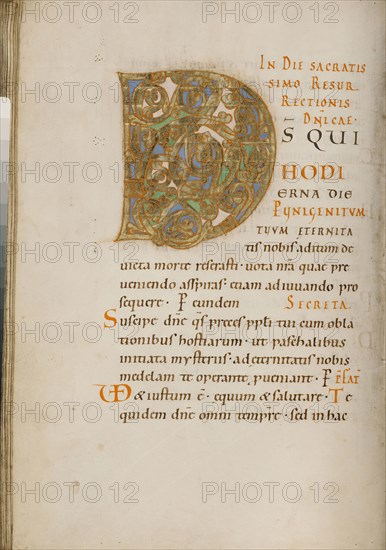 IN DIE SACRATIS
SIMO RESUR
RECTIONIS
DNICAE·
DS QUI
HODI
ERNA DIE
P UNIGENITUM
TUUM ETERNITA
tis nobis aditum de
victa morte reserasti· vota nra quae pre
veniendo asspiras· etiam adiuvando pro
sequere· P eundem SECRETA.
Suscipe dne qs preces ppli tui cum obla
tionibus hostiarum· ut paschalibus
initiata mysteriis· ad eternitatis nobis
medelam te operante proveniant· PFAT
VD & iustum e· equum & salutare· Te
quidem dne omni tempre· sed in hac
PHOTO 12